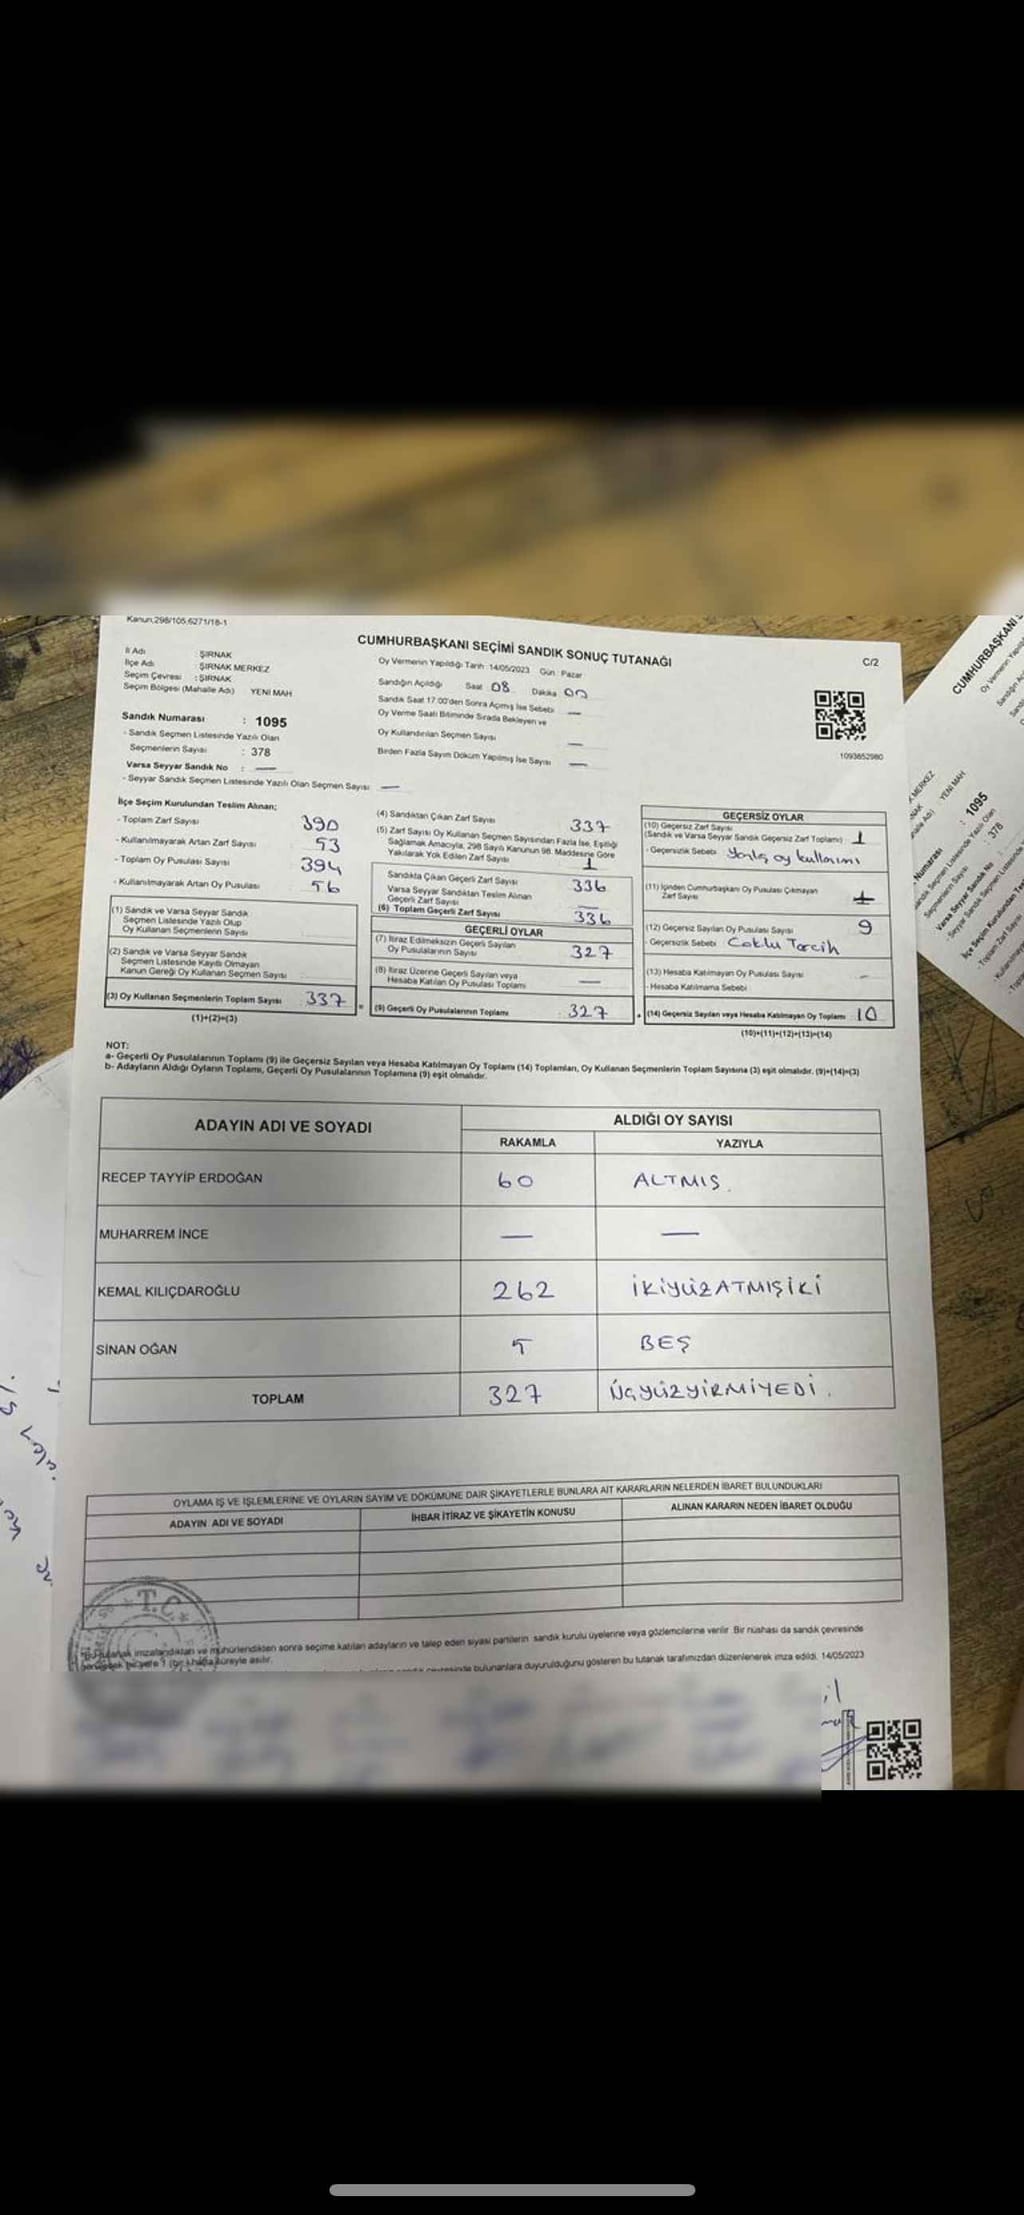 Kanun:298/105,6271/18-1
CUMHURBAŞKANI SEÇİMİ SANDIK SONUÇ TUTANAĞI
C/2
İl Adı : ŞIRNAK
İlçe Adı : ŞIRNAK MERKEZ
Seçim Çevresi : ŞIRNAK
Seçim Bölgesi (Mahalle Adı) YENİ MAH
Sandık Numarası : 1095
- Sandık Seçmen Listesinde Yazılı Olan
Seçmenlerin Sayısı : 378
Varsa Seyyar Sandık No : —
- Seyyar Sandık Seçmen Listesinde Yazılı Olan Seçmen Sayısı —
Oy Vermenin Yapıldığı Tarih : 14/05/2023 Gün : Pazar
Sandığın Açıldığı Saat 08 Dakika 00
Sandık Saat 17:00'den Sonra Açılmış İse Sebebi —
Oy Verme Saati Bitiminde Sırada Bekleyen ve
Oy Kullandırılan Seçmen Sayısı —
Birden Fazla Sayım Döküm Yapılmış İse Sayısı —
1093652980
İlçe Seçim Kurulundan Teslim Alınan;
- Toplam Zarf Sayısı 390
- Kullanılmayarak Artan Zarf Sayısı 53
- Toplam Oy Pusulası Sayısı 394
- Kullanılmayarak Artan Oy Pusulası 56
(1) Sandık ve Varsa Seyyar Sandık
Seçmen Listesinde Yazılı Olup
Oy Kullanan Seçmenlerin Sayısı
(2) Sandık ve Varsa Seyyar Sandık
Seçmen Listesinde Kayıtlı Olmayan
Kanun Gereği Oy Kullanan Seçmen Sayısı
(3) Oy Kullanan Seçmenlerin Toplam Sayısı : 337
(1)+(2)=(3)
(4) Sandıktan Çıkan Zarf Sayısı 337
(5) Zarf Sayısı Oy Kullanan Seçmen Sayısından Fazla İse, Eşitliği
Sağlamak Amacıyla, 298 Sayılı Kanunun 98. Maddesine Göre
Yakılarak Yok Edilen Zarf Sayısı 1
Sandıkta Çıkan Geçerli Zarf Sayısı 336
Varsa Seyyar Sandıktan Teslim Alınan
Geçerli Zarf Sayısı —
(6) Toplam Geçerli Zarf Sayısı 336
GEÇERLİ OYLAR
(7) İtiraz Edilmeksizin Geçerli Sayılan
Oy Pusulalarının Sayısı 327
(8) İtiraz Üzerine Geçerli Sayılan veya
Hesaba Katılan Oy Pusulası Toplamı —
(9) Geçerli Oy Pusulalarının Toplamı : 327
GEÇERSİZ OYLAR
(10) Geçersiz Zarf Sayısı
(Sandık ve Varsa Seyyar Sandık Geçersiz Zarf Toplamı) 1
- Geçersizlik Sebebi Yanlış oy kullanımı
(11) İçinden Cumhurbaşkanı Oy Pusulası Çıkmayan
Zarf Sayısı
(12) Geçersiz Sayılan Oy Pusulası Sayısı 9
- Geçersizlik Sebebi Çoklu Tercih
(13) Hesaba Katılmayan Oy Pusulası Sayısı —
- Hesaba Katılmama Sebebi
(14) Geçersiz Sayılan veya Hesaba Katılmayan Oy Toplamı 10
(10)+(11)+(12)+(13)=(14)
NOT:
a- Geçerli Oy Pusulalarının Toplamı (9) ile Geçersiz Sayılan veya Hesaba Katılmayan Oy Toplamı (14) Toplamları, Oy Kullanan Seçmenlerin Toplam Sayısına (3) eşit olmalıdır. (9)+(14)=(3)
b- Adayların Aldığı Oyların Toplamı, Geçerli Oy Pusulalarının Toplamına (9) eşit olmalıdır.
ADAYIN ADI VE SOYADI ALDIĞI OY SAYISI
RAKAMLA YAZIYLA
RECEP TAYYİP ERDOĞAN 60 ALTMIŞ.
MUHARREM İNCE — —
KEMAL KILIÇDAROĞLU 262 İKİYÜZATMIŞİKİ
SİNAN OĞAN 5 BEŞ
TOPLAM 327 ÜÇYÜZYİRMİYEDİ.
OYLAMA İŞ VE İŞLEMLERİNE VE OYLARIN SAYIM VE DÖKÜMÜNE DAİR ŞİKAYETLERLE BUNLARA AİT KARARLARIN NELERDEN İBARET BULUNDUKLARI
ADAYIN ADI VE SOYADI İHBAR İTİRAZ VE ŞİKAYETİN KONUSU ALINAN KARARIN NEDEN İBARET OLDUĞU
T.C.
tutanak imzalandıktan ve mühürlendikten sonra seçime katılan adayların ve talep eden siyasi partilerin sandık kurulu üyelerine veya gözlemcilerine verilir. Bir nüshası da sandık çevresinde
bulunanlara duyurulduğunu gösteren bu tutanak tarafımızdan düzenlenerek imza edildi. 14/05/2023
CUMHURBAŞKANI
MERKEZ
YENİ MAH
: 1095
: 378